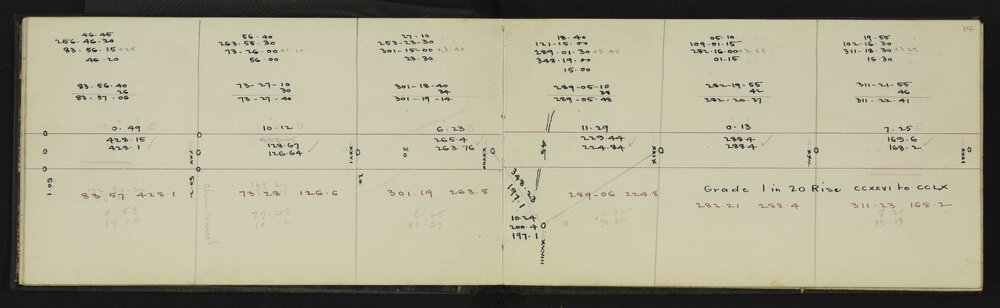 46.45
256.46.20
83.56.15 +25
46.20
83.56.40
26
83.57.06
0.49
428.15
428.1
83.57 428.1
56.40
263.55.30
73-26.00 +1.10
56.00
73-27-10
30
73-27-40
10-12
128.67
126.64
73.28 126.6
27-10
253-23-30
301-15-00 +3.40
23.30
301-18-40
34
301-19-14
6-23
265.4
263.76
50
301.19 263.8
18.40
121-15-00
289-01.30 +3.40
348.19.00
15.00
289-05-10
38
289-05-48
11-29
229.44
224.84
45
348.23
197.1
10-24
200.4
197.1
XXVIII
289-06 224.8
05.10
109.01.15
282.16.00 +3.55
01.15
282-19-55
42
282-20-37
0-13
288.4
288.4
XXIX
Grade 1 in 20 Rise CCXXVI to CCLX
282.21 288.4
18
19.55
102.16.30
311-18.30 +3.25
16.30
311-21-55
46
311-22.41
7.25
169.6
168.2
XXX
XXXI
311-23 168.2